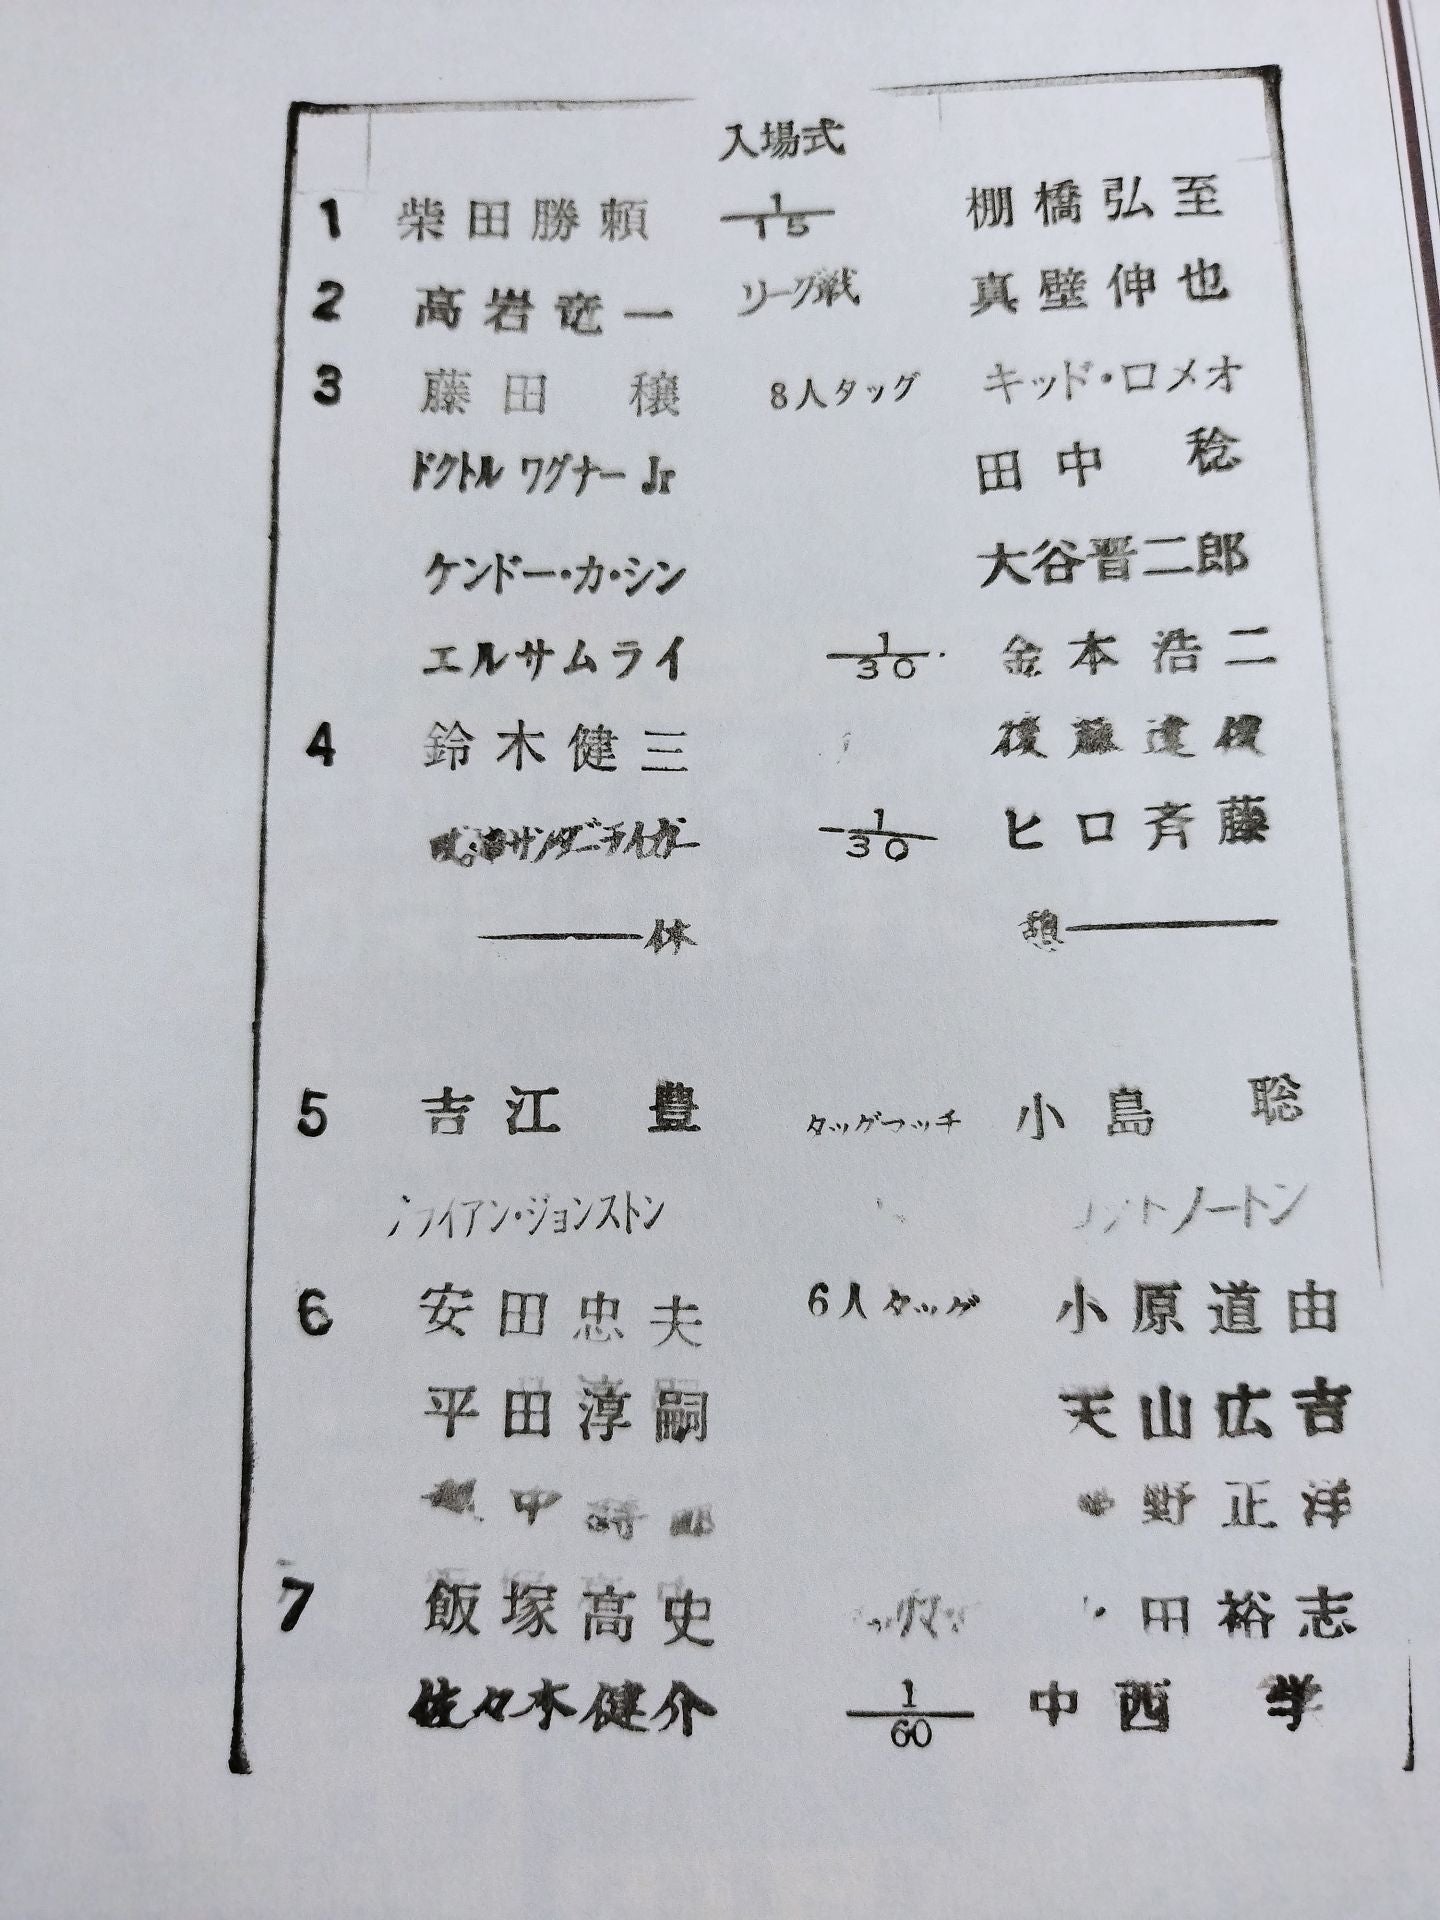 入場式
1 柴田勝頼 1/15 棚橋弘至
2 高岩竜一 リーグ戦 真壁伸也
3 藤田 穣 8人タッグ キッド・ロメオ
ドクトル ワグナー Jr 田中 稔
ケンドー・カ・シン 大谷晋二郎
エルサムライ 1/30 金本浩二
4 鈴木健三 後藤達俊
サンダーライガー 1/30 ヒロ斉藤
休 憩
5 吉江 豊 タッグマッチ 小島 聡
ライアン・ジョンストン ノートン
6 安田忠夫 6人タッグ 小原道由
平田淳嗣 天山広吉
中 野正洋
7 飯塚高史 田裕志
佐々木健介 1/60 中西 学